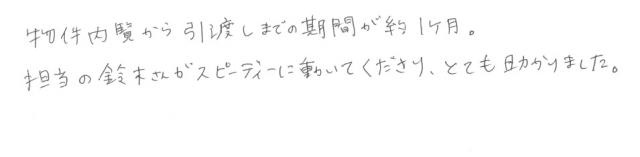 物件内覧から引渡しまでの期間が約1ヶ月。
担当の鈴木さんがスピーディーに動いてくださり、とても助かりました。